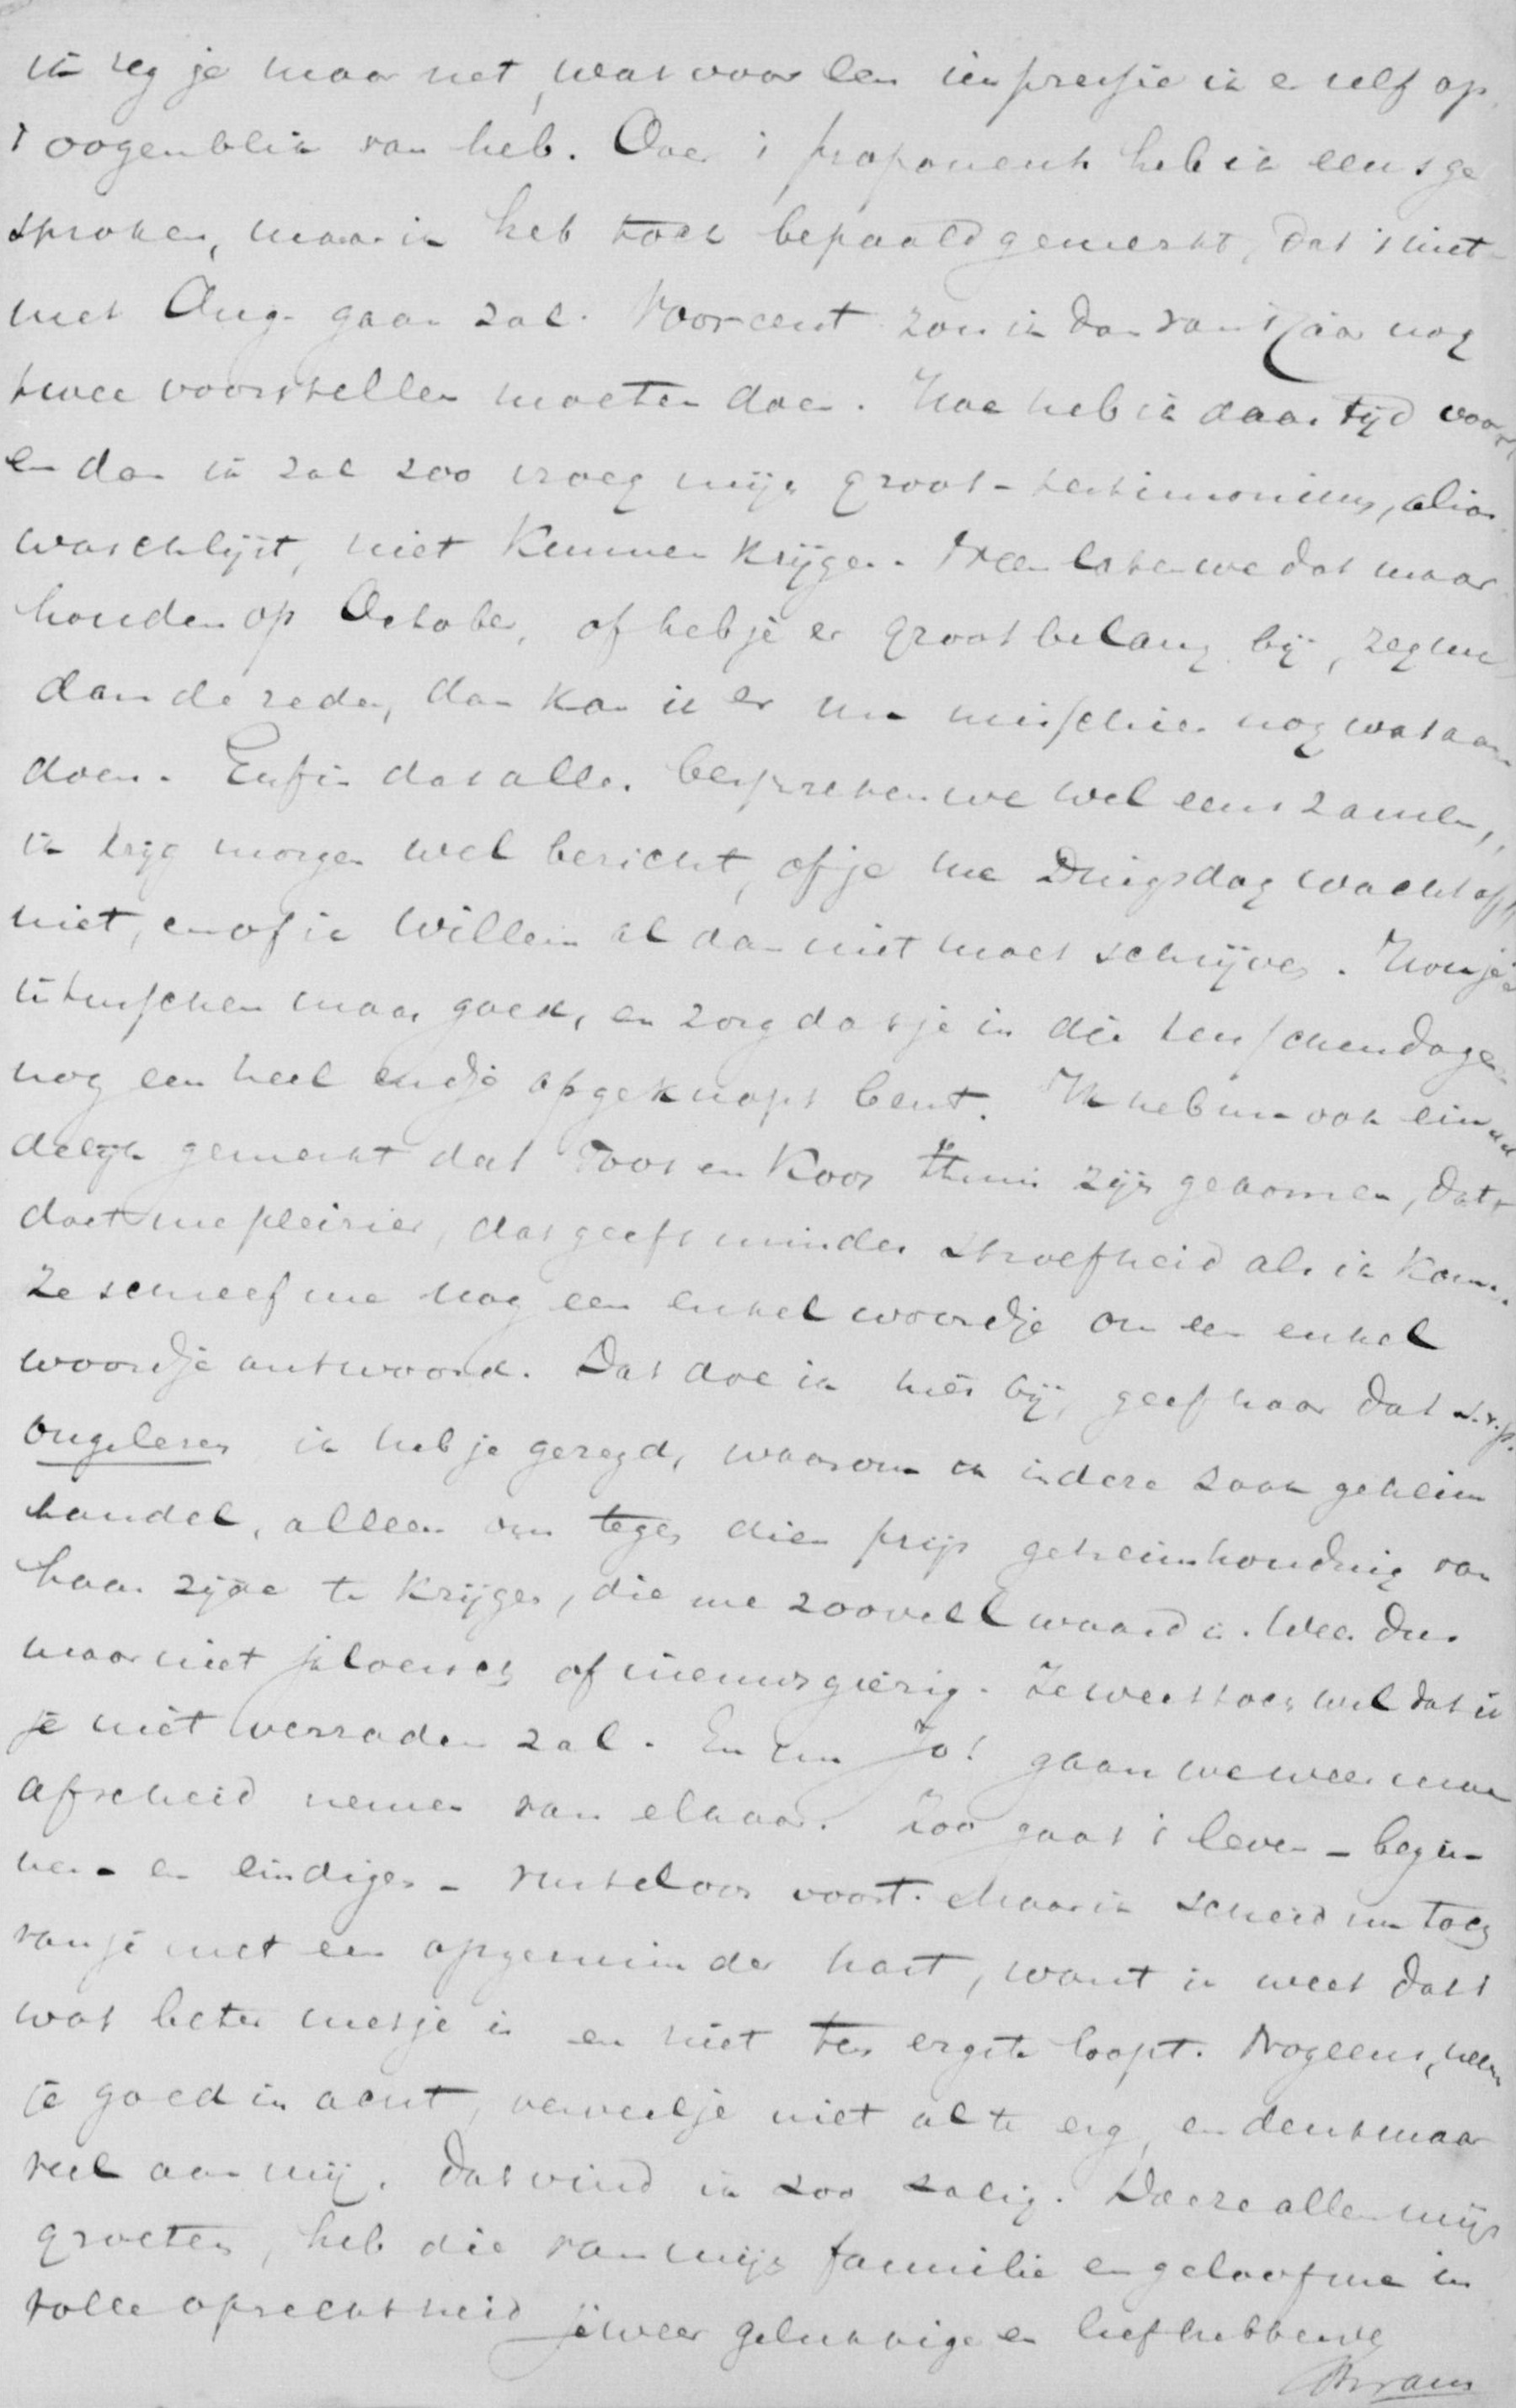 ik zeg je maar net, wat voor een impressie ik er zelf op
't oogenblik van heb. Over 't proponents heb ik eens ge
sproken, maar ik heb toch bepaald gemerkt, dat 't niet
met Aug. gaan zal. Vooreerst zou ik dan van 't jaar nog
twee voorstellen moeten doen. Hoe heb ik daar tijd voor,
en dan ik zal zoo vroeg mijn groot-testimonium, alias
waschlijst, niet kunnen krijgen. Neen laten we dat maar
houden op October, of heb je er groot belang bij, zeg me
dan de reden, dan kan ik er nu misschien nog wat aan
doen. Enfin dat alles bespreken we wel eens zamen,
ik krijg morgen wel bericht, of je me Dingsdag wacht of
niet, en of ik Willem al dan niet moet schrijven. Hou je
intusschen maar goed, en zorg dat je in die tusschendagen
nog een heel eindje opgeknapt bent. Ik heb nu ook eind
delijk gemerkt dat Toos en Koos thuis zijn gekomen, dat
doet me pleizier, dat geeft minder stroefheid als ik kom.
Ze schreef me nog een enkel woordje om een enkel
woordje antwoord. Dat doe ik hier bij, geef haar dat s.v.p.
ongelezen ik heb je gezegd, waarom ik in deze zaak geheim
handel, alleen om tegen dien prijs geheimhouding van
haar zijde te krijgen, die me zooveel waard is. Wees dus
maar niet jaloersch of nieuwsgierig. Je weet toch wel dat ik
je niet verraden zal. En nu Jo! gaan we weer maar
afscheid nemen van elkaar. Zoo gaat 't leven – begin
nen – en eindigen – rusteloos voort. Maar ik scheid nu toch
van je met een opgeruimder hart, want ik weet dat 't
wat beter met je is en niet ten ergste loopt. Nog eens, neem
je goed in acht, verveel je niet al te erg, en denk maar
veel aan mij. Dat vind ik zoo zalig. Doe ze allen mijn
groeten, heb die van mijn familie en geloof me in
volle oprechtheid je weer gelukkige en liefhebbende
Bram